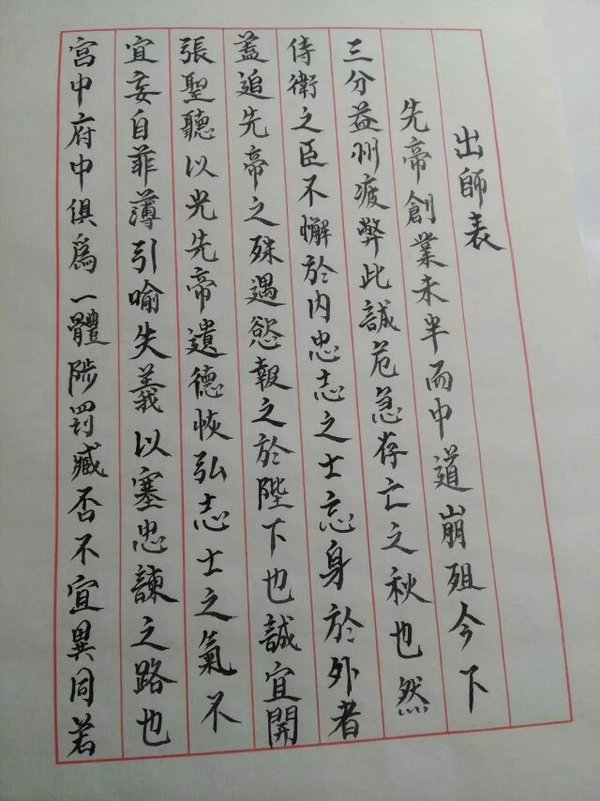 出師表
先帝創業未半而中道崩殂今下
三分益州疲弊此誠危急存亡之秋也然
侍衛之臣不懈於内忠志之士忘身於外者
蓋追先帝之殊遇慾報之於陛下也誠宜開
張聖聽以光先帝遺德恢弘志士之氣不
宜妄自菲薄引喻失義以塞忠諫之路也
宮中府中俱爲一體陟罰臧否不宜異同若